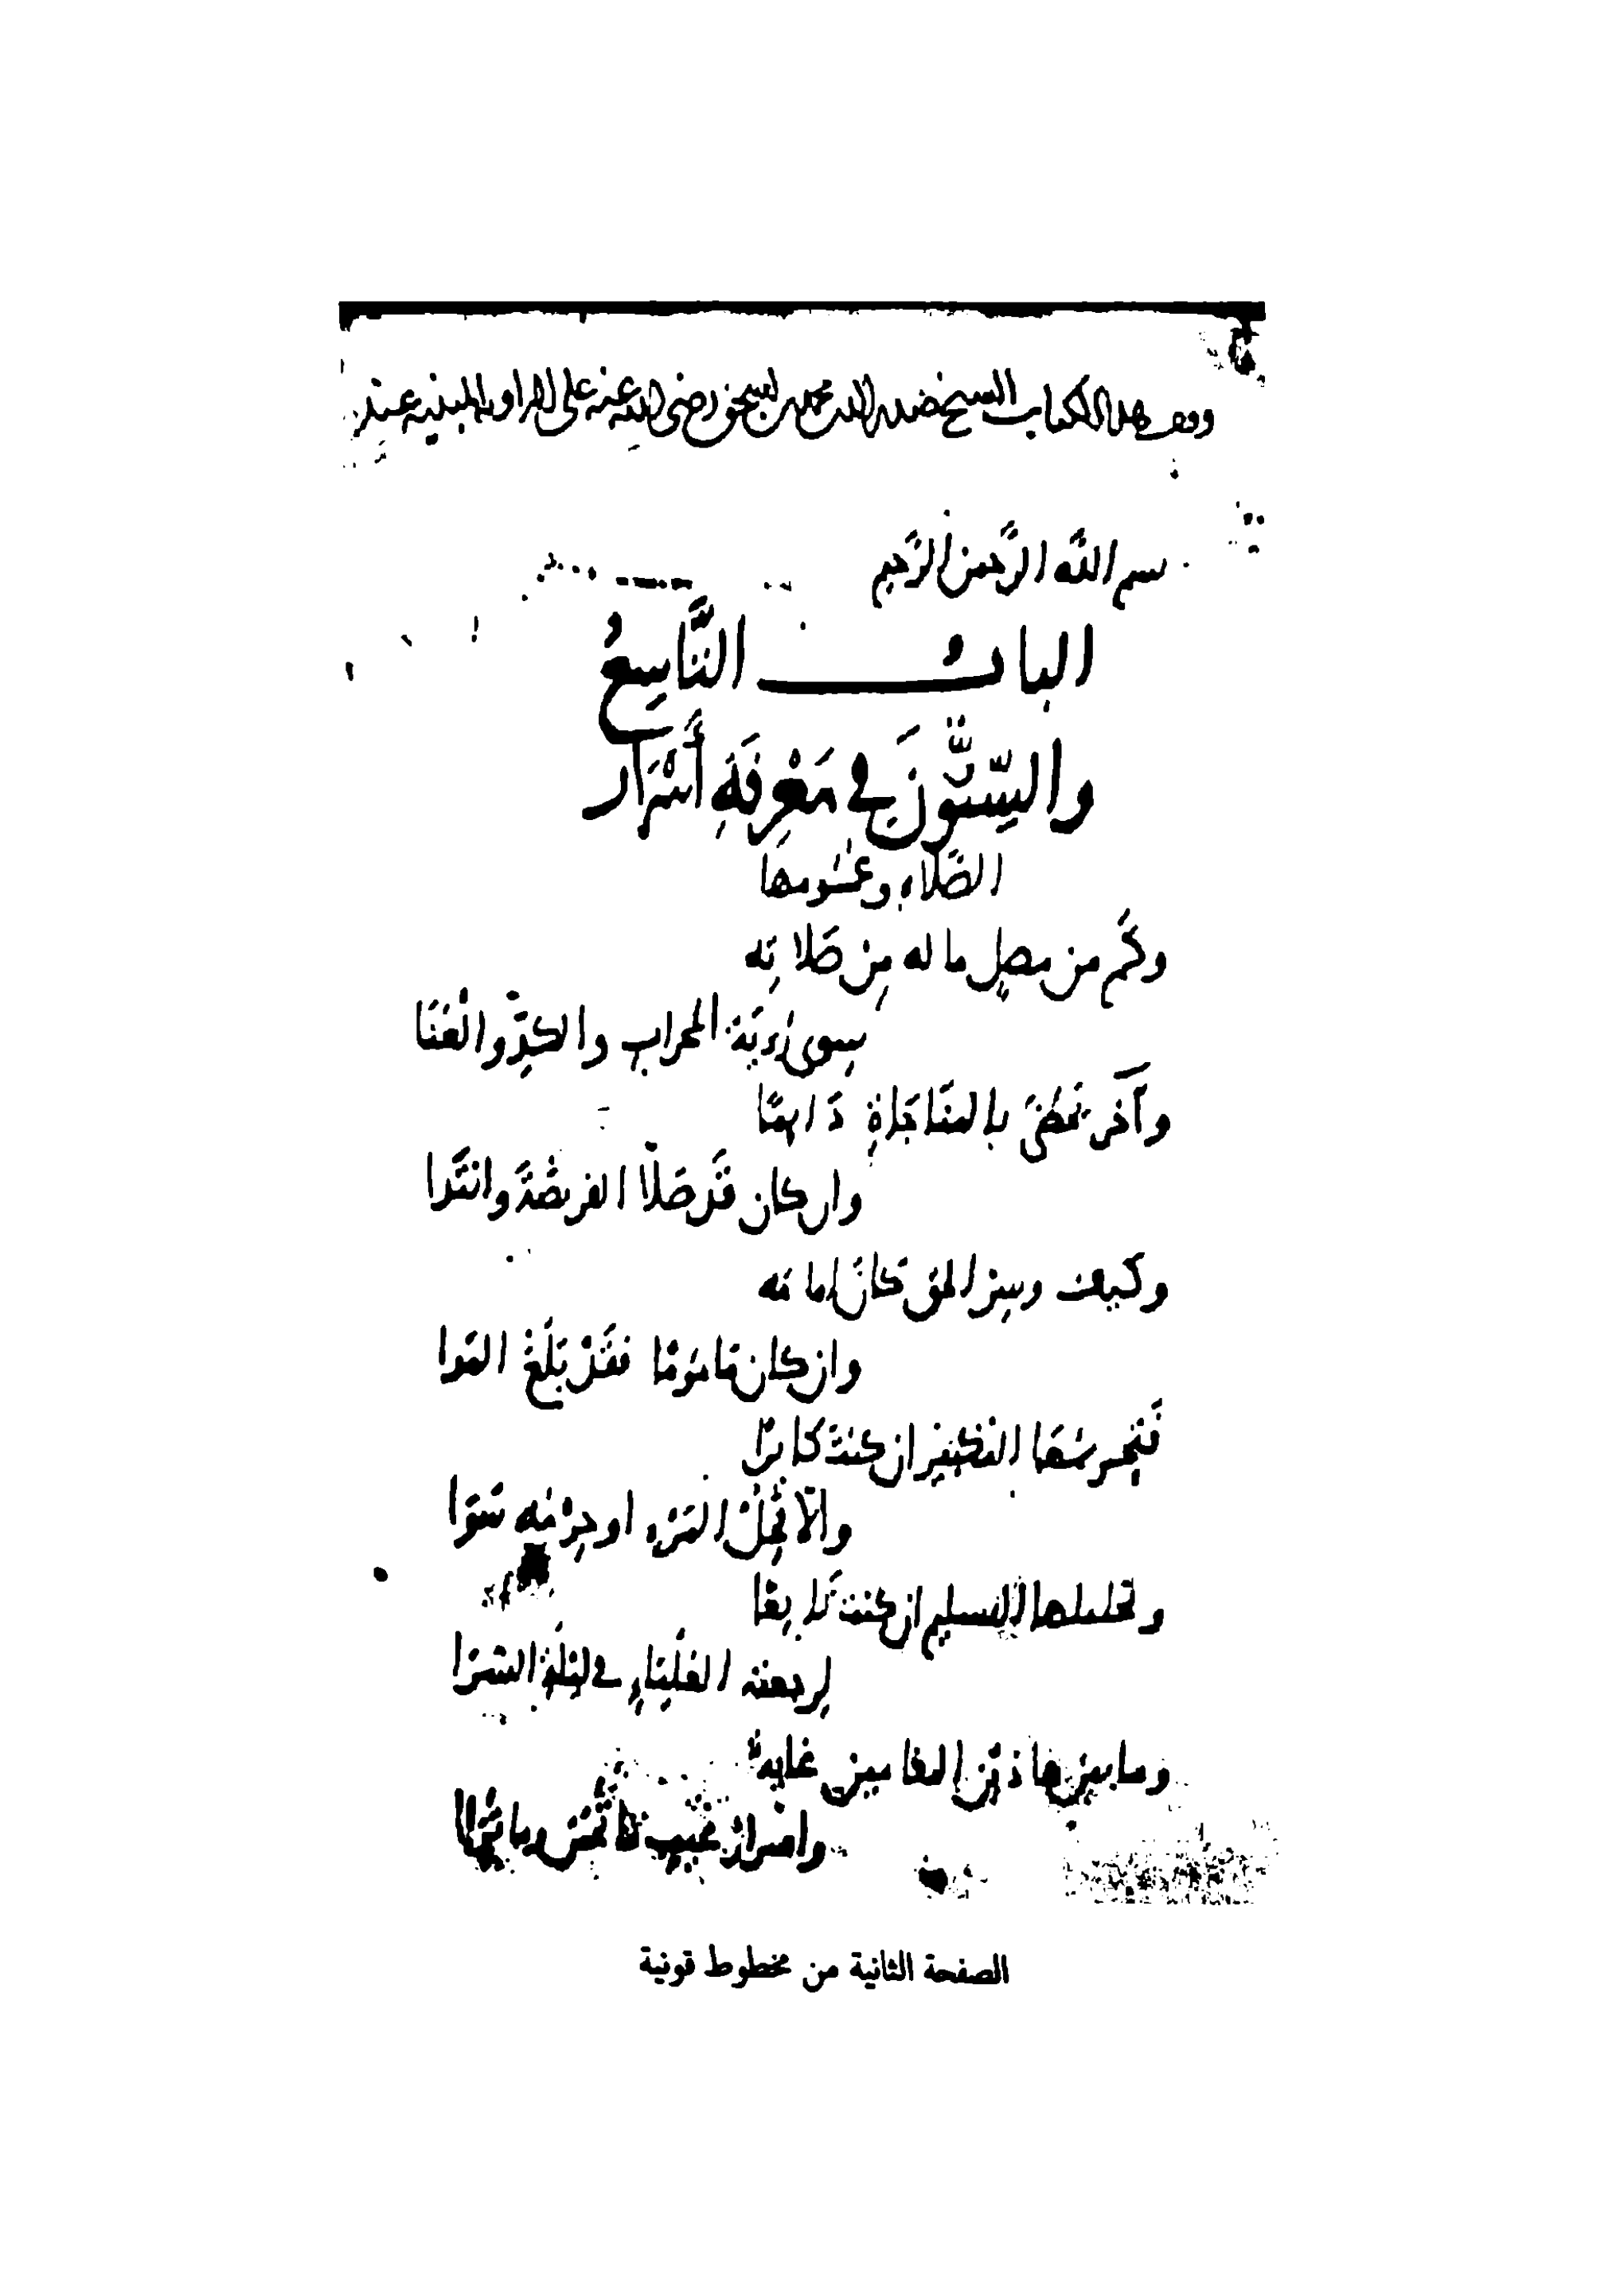 ووقف هذا الكتاب الشيخ صدر الدين محمد بن إسحق رضي الله عنه على الزاوية المبنية عند
بسم الله الرَّحمن الرَّحيم
البابُ التَّاسِعُ
والسِّتُّونَ في مَعْرِفَةِ أَسْرَار
الصَّلاةِ وعُمُومها
وكَم من مصلٍ ما له مِن صَلاتِه
سِوى رُؤيَةِ المحرابِ والكَدِّ والعَنَا
وآخَر يَحظى بالمنَاجَاةِ دَايمًا
وان كان قَد صَلَّا الفريضَةَ وابتَدا
وكيف وسِر الحق كانَ إمامَه
وان كان مَامُومًا فقَدْ بَلَغَ المَدا
فتَحريمُهَا التَكبير ان كنتَ كابرًا
والّا فحِلُّ المَرءِ او حِرْمُه سَوَا
وتحليلها التسليم ان كنت تَابِعًا
لِرجعته العَليَاءِ في ليلَةِ السُّرَا
وما بين هاذَين المقامين غايةٌ
واسْرار غيبٍ مَا تُحَسّ وما تُرَا
الصفحة الثانية من مخطوط قونية